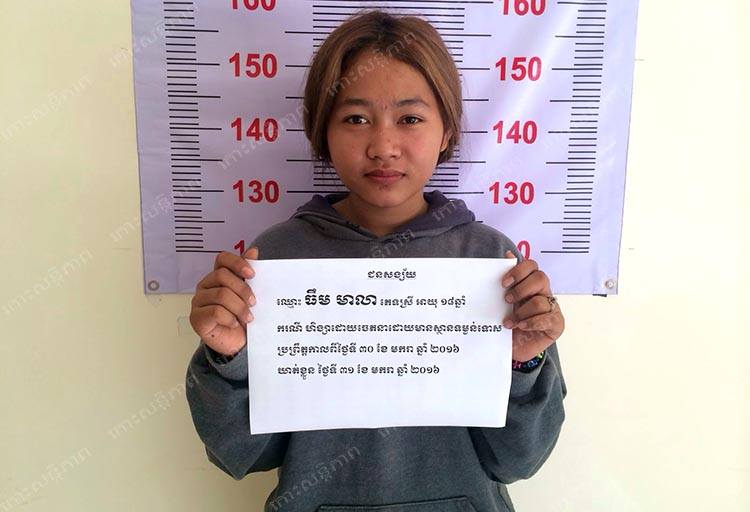 160 160
150 150
140 140
130 130
ជនសង្ស័យ
ឈ្មោះ ធឹម មាលា ភេទស្រី អាយុ ១៨ឆ្នាំ
ករណី ហិង្សាដោយចេតនាដោយមានស្ថានទម្ងន់ទោស
ប្រព្រឹត្តកាលពីថ្ងៃទី ៣០ ខែ មករា ឆ្នាំ ២០១៦
ឃាត់ខ្លួន ថ្ងៃទី ៣១ ខែ មករា ឆ្នាំ ២០១៦
កោះសន្តិភាព